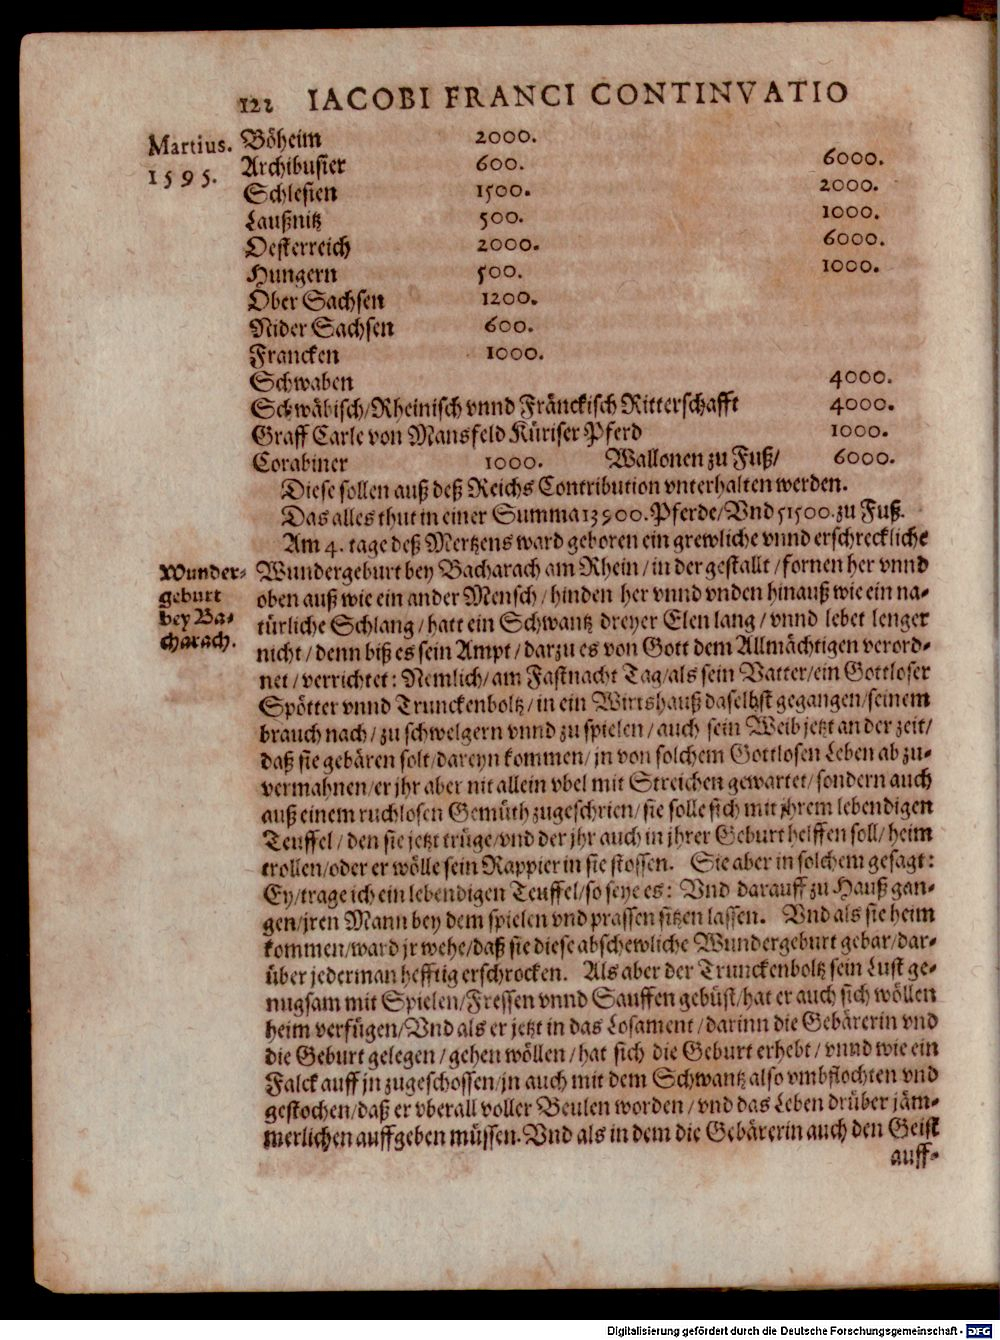 122 IACOBI FRANCI CONTINVATIO
Martius.
1595.
Böheim 2000.
Archibusier 600. 6000.
Schlesien 1500. 2000.
Laußnitz 500. 1000.
Oesterreich 2000. 6000.
Hungern 500. 1000.
Ober Sachsen 1200.
Nider Sachsen 600.
Francken 1000.
Schwaben 4000.
Schwäbisch/Rheinisch vnnd Fränckisch Ritterschafft 4000.
Graff Carle von Mansfeld Küriser Pferd 1000.
Corabiner 1000. Wallonen zu Fuß/ 6000.
Diese sollen auß deß Reichs Contribution vnterhalten werden.
Das alles thut in einer Summa 13500. Pferde/Vnd 51500. zu Fuß.
Am 4. tage deß Mertzens ward geboren ein grewliche vnnd erschreckliche
Wunder-
geburt
bey Ba-
charach.
Wundergeburt bey Bacharach am Rhein/in der gestallt/fornen her vnnd
oben auß wie ein ander Mensch/hinden her vnnd vnden hinauß wie ein na-
türliche Schlang/hatt ein Schwantz dreyer Elen lang/vnnd lebet lenger
nicht/denn biß es sein Ampt/darzu es von Gott dem Allmächtigen verord-
net/verrichtet: Nemlich/am Fastnacht Tag/als sein Vatter/ein Gottloser
Spötter vnnd Trunckenboltz/in ein Wirtshauß daselbst gegangen/seinem
brauch nach/zu schwelgern vnnd zu spielen/auch sein Weib jetzt an der zeit/
daß sie gebären solt/dareyn kommen/jn von solchem Gottlosen Leben ab zu-
vermahnen/er jhr aber nit allein vbel mit Streichen gewartet/sondern auch
auß einem ruchlosen Gemüth zugeschrien/sie solle sich mit jhrem lebendigen
Teuffel/den sie jetzt trüge/vnd der jhr auch in jhrer Geburt helffen soll/heim
trollen/oder er wölle sein Rappier in sie stossen. Sie aber in solchem gesagt:
Ey/trage ich ein lebendigen Teuffel/so seye es: Vnd darauff zu Hauß gan-
gen/jren Mann bey dem spielen vnd prassen sitzen lassen. Vnd als sie heim
kommen/ward jr wehe/daß sie diese abschewliche Wundergeburt gebar/dar-
über jederman hefftig erschrocken. Als aber der Trunckenboltz sein Lust ge-
nugsam mit Spielen/Fressen vnnd Sauffen gebüst/hat er auch sich wöllen
heim verfügen/Vnd als er jetzt in das Losament/darinn die Gebärerin vnd
die Geburt gelegen/gehen wöllen/hat sich die Geburt erhebt/vnnd wie ein
Falck auff jn zugeschossen/jn auch mit dem Schwantz also vmbflochten vnd
gestochen/daß er vberall voller Beulen worden/vnd das Leben drüber jäm-
merlichen auffgeben müssen. Vnd als in dem die Gebärerin auch den Geist
auff-
Digitalisierung gefördert durch die Deutsche Forschungsgemeinschaft - DFG